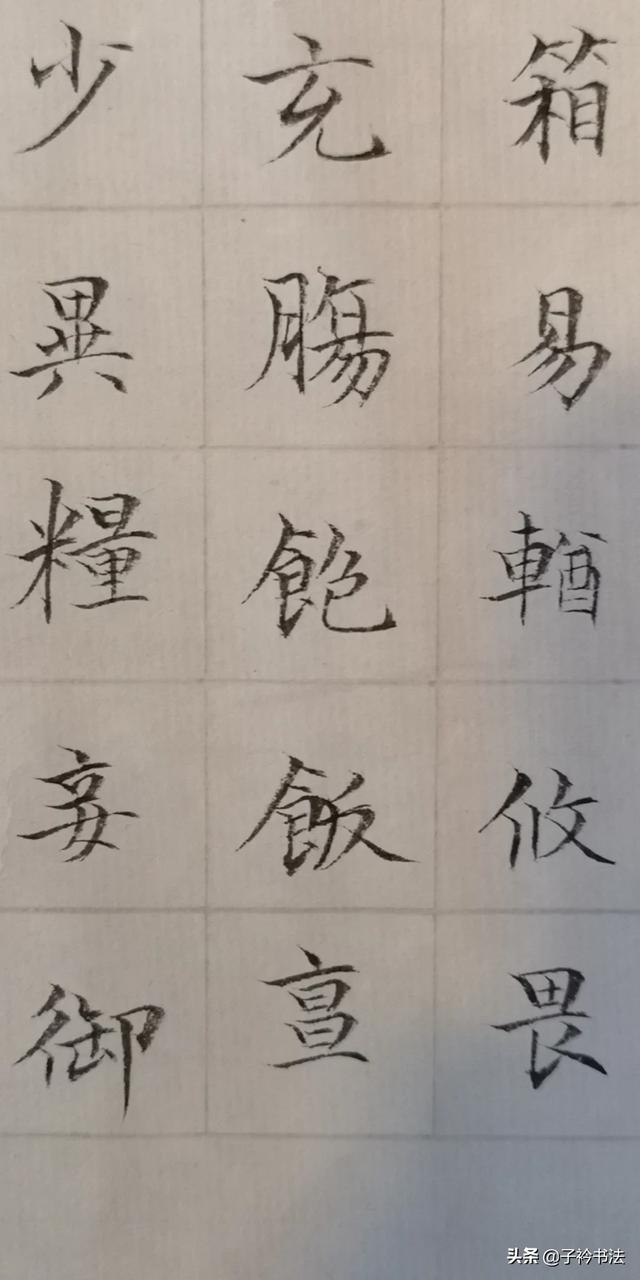 箱易輶攸畏
充膓飽飯
少異糧妾御
头条 @子衿书法